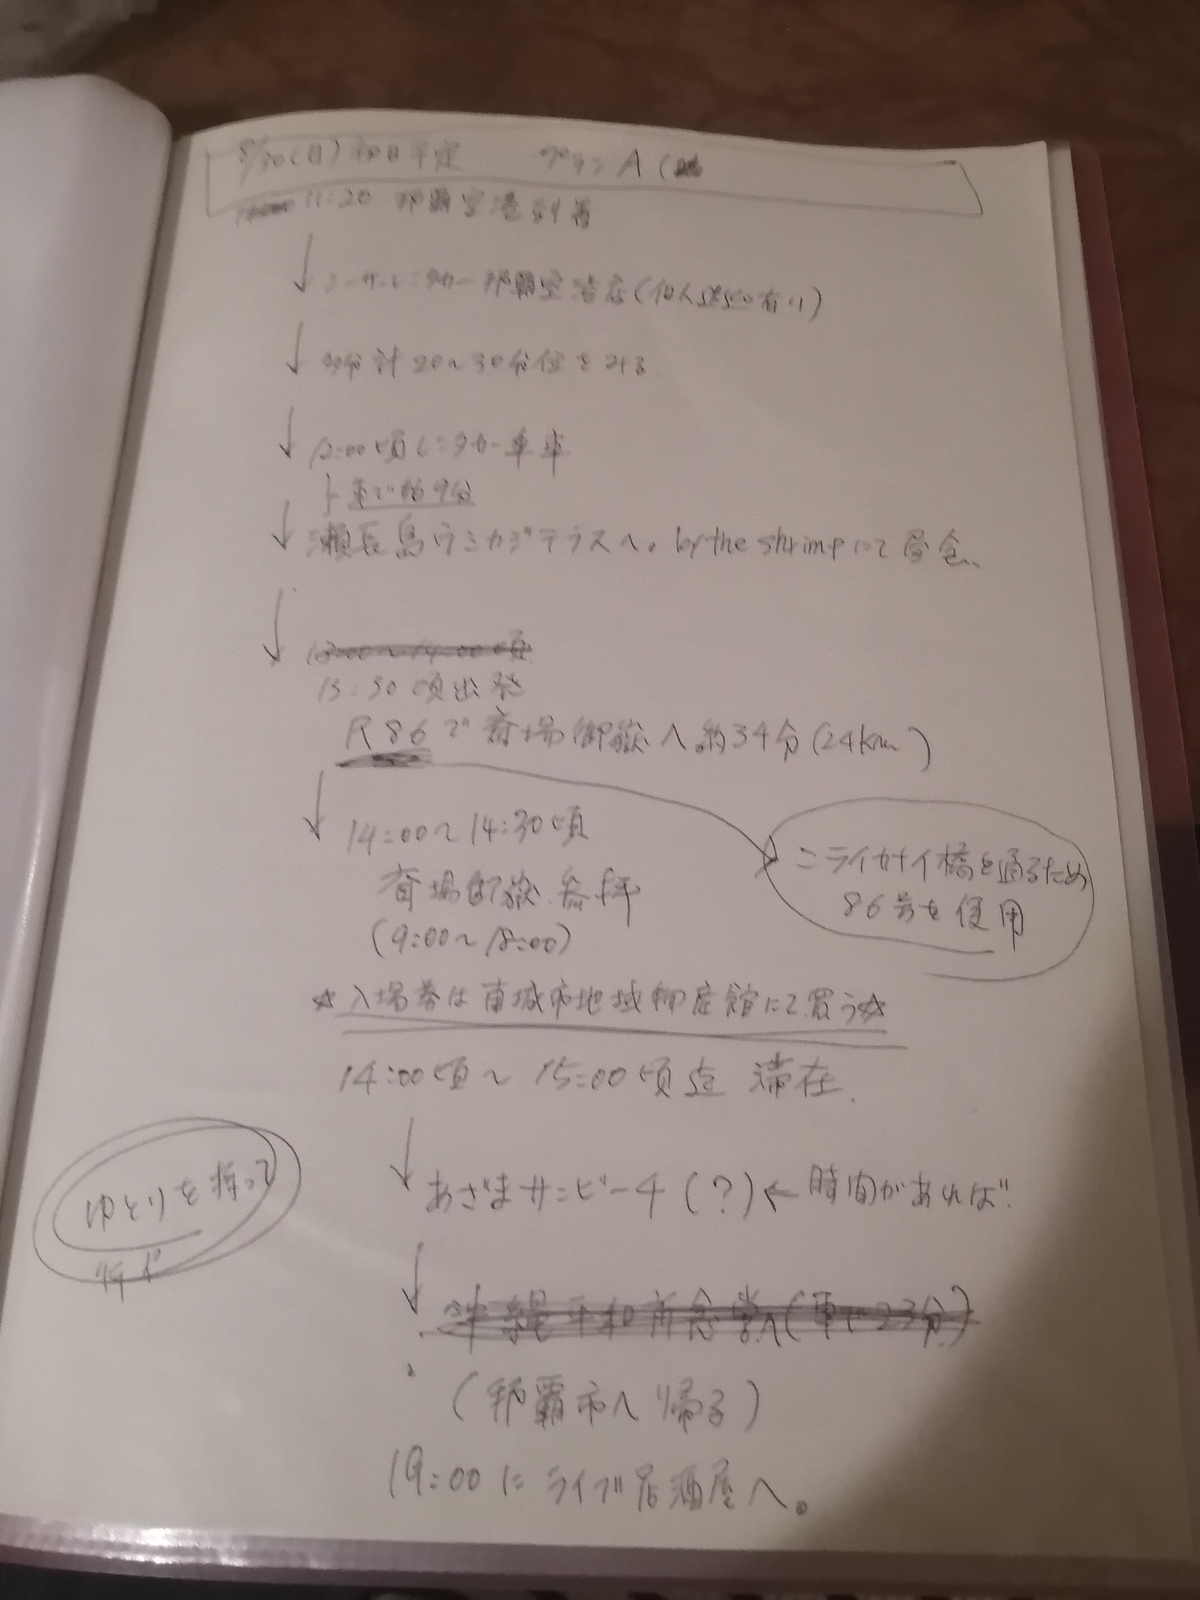 8/30(日)初日予定 A(
11:20 那覇空港到着
↓ 那覇空港店(個人送迎有り)
↓ 計20～30分位をみる
↓ 12:00頃レンタカー乗車
車で約9分
↓ 瀬長島ウミカジテラスへ。by the shrimpにて昼食、
↓ 13:00～14:00頃
13:30頃出発
R86で斎場御嶽へ約34分(24km)
↓ 14:00～14:30頃
斎場御嶽参拝
(9:00～18:00)
ニライカナイ橋を通るため
86号を使用
☆入場券は南城市地域物産館にて買う☆
14:00頃～15:00頃迄 滞在.
↓ あざまサンビーチ(?)←時間があれば
ゆとりを持って
↓ 沖縄平和祈念堂へ(車で23分)
(那覇市へ帰る)
19:00にライブ居酒屋へ。